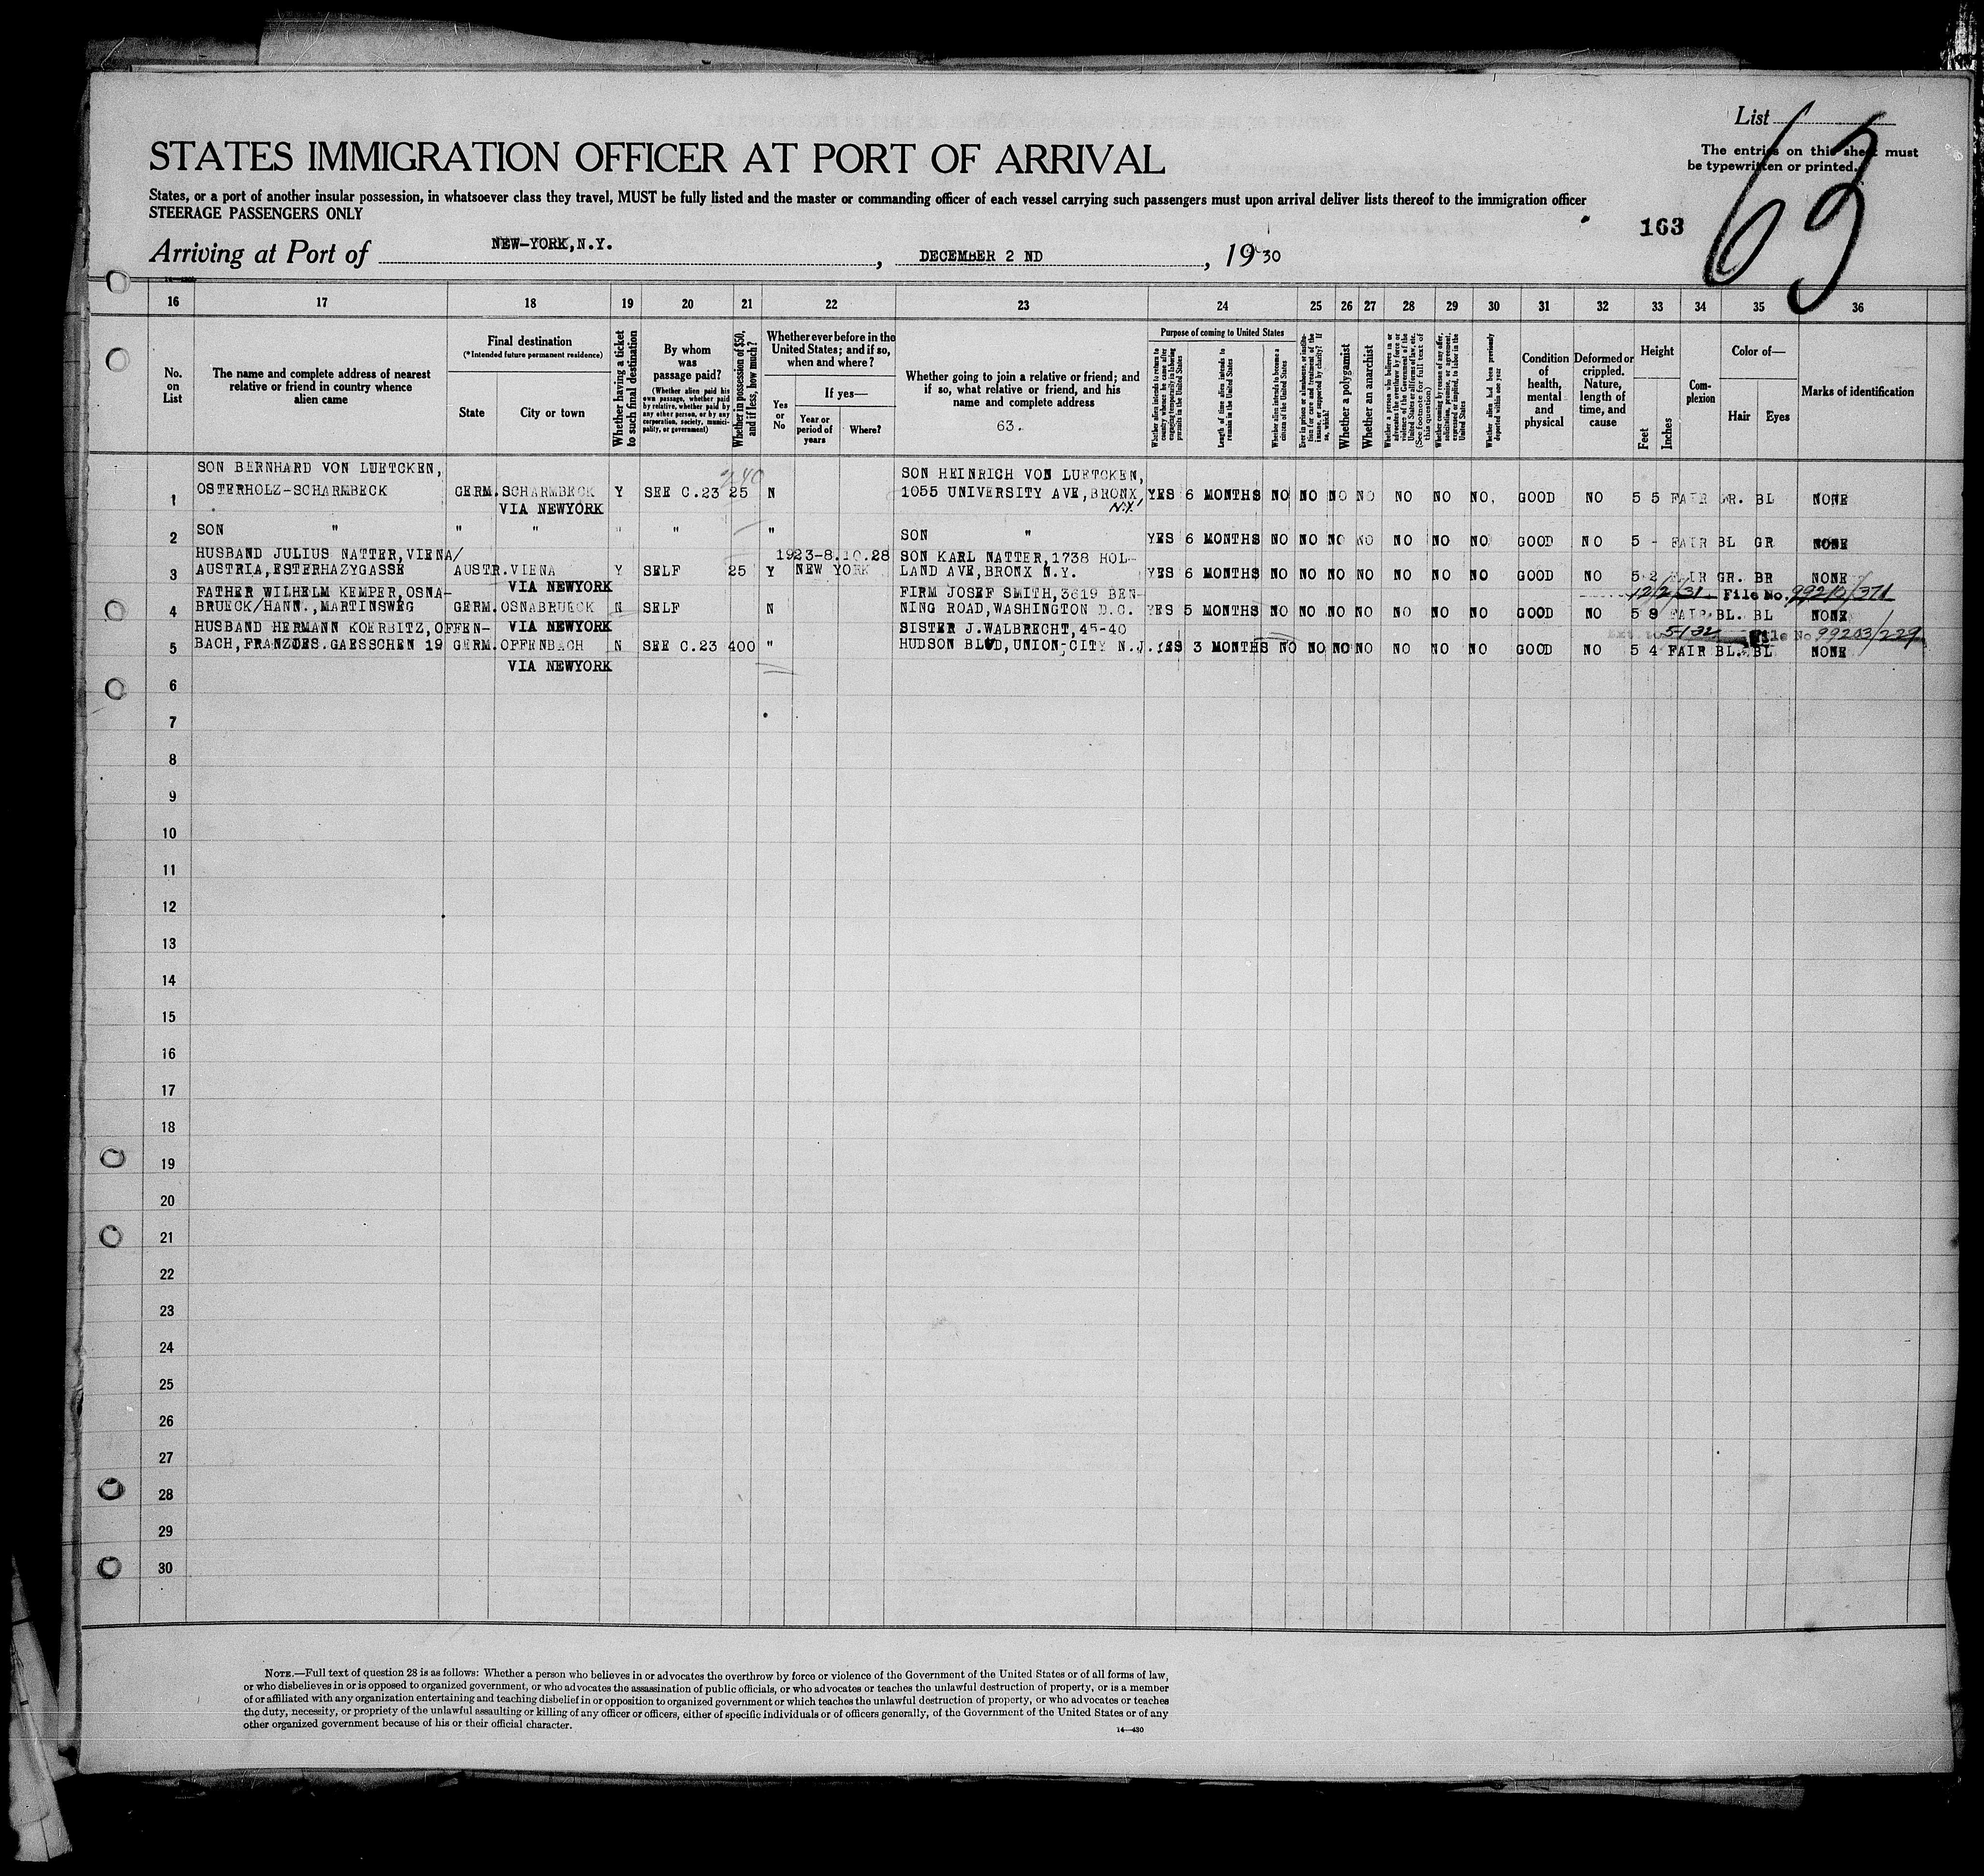 List
63
The entries on this sheet must
be typewritten or printed.
STATES IMMIGRATION OFFICER AT PORT OF ARRIVAL
States, or a port of another insular possession, in whatsoever class they travel, MUST be fully listed and the master or commanding officer of each vessel carrying such passengers must upon arrival deliver lists thereof to the immigration officer
STEERAGE PASSENGERS ONLY
163
Arriving at Port of NEW-YORK,N.Y. , DECEMBER 2 ND , 1930
16 17 18 19 20 21 22 23 24 25 26 27 28 29 30 31 32 33 34 35 36
No. on List
The name and complete address of nearest relative or friend in country whence alien came
Final destination
(*Intended future permanent residence)
State
City or town
Whether having a ticket to such final destination
By whom was passage paid?
(Whether alien paid his own passage, whether paid by relative, whether paid by any other person, or by any corporation, society, municipality, or government)
Whether in possession of $50, and if less, how much?
Whether ever before in the United States; and if so, when and where?
Yes or No
If yes—
Year or period of years
Where?
Whether going to join a relative or friend; and if so, what relative or friend, and his name and complete address
63.
Purpose of coming to United States
Whether alien intends to return to country whence he came after engaging temporarily in laboring pursuits in the United States
Length of time alien intends to remain in the United States
Whether alien intends to become a citizen of the United States
Ever in prison or almshouse, or institution for care and treatment of the insane, or supported by charity? If so, which?
Whether a polygamist
Whether an anarchist
Whether a person who believes in or advocates the overthrow by force or violence of the Government of the United States or all forms of law, etc. (See footnote for full text of this question)
Whether coming by reason of any offer, solicitation, promise, or agreement, expressed or implied, to labor in the United States
Whether alien had been previously deported within one year
Condition of health, mental and physical
Deformed or crippled. Nature, length of time, and cause
Height
Feet
Inches
Complexion
Color of—
Hair
Eyes
Marks of identification
SON BERNHARD VON LUETCKEN, SON HEINRICH VON LUETCKEN,
240
1 OSTERHOLZ-SCHARMBECK GERM. SCHARMBECK Y SEE C.23 25 N 1055 UNIVERSITY AVE,BRONX, YES 6 MONTHS NO NO NO NO NO NO NO, GOOD NO 5 5 FAIR GR. BL NONE
VIA NEWYORK N.Y.
2 SON " " " " " " SON " YES 6 MONTHS NO NO NO NO NO NO NO GOOD NO 5 - FAIR BL GR NONE
HUSBAND JULIUS NATTER,VIENA/ 1923-8.10.28 SON KARL NATTER,1738 HOL-
3 AUSTRIA,ESTERHAZYGASSE AUSTR. VIENA Y SELF 25 Y NEW YORK LAND AVE,BRONX N.Y. YES 6 MONTHS NO NO NO NO NO NO NO GOOD NO 5 2 FAIR GR. BR NONE
VIA NEWYORK
FATHER WILHELM KEMPER,OSNA- FIRM JOSEF SMITH,3619 BEN- 12/2/31 File No.
4 BRUECK/HANN.,MARTINSWEG GERM. OSNABRUECK N SELF N NING ROAD,WASHINGTON D.C. YES 5 MONTHS NO NO NO NO NO NO NO GOOD NO 5 8 FAIR BL. BL NONE
HUSBAND HERMANN KOERBITZ,OFFEN- VIA NEWYORK SISTER J.WALBRECHT,45-40 File No 99203/229
5 BACH,FRANZOES.GAESSCHEN 19 GERM. OFFENBACH N SEE C.23 400 " HUDSON BLVD,UNION-CITY N.J. YES 3 MONTHS NO NO NO NO NO NO NO GOOD NO 5 4 FAIR BL. BL NONE
VIA NEWYORK
6
7
8
9
10
11
12
13
14
15
16
17
18
19
20
21
22
23
24
25
26
27
28
29
30
NOTE.—Full text of question 28 is as follows: Whether a person who believes in or advocates the overthrow by force or violence of the Government of the United States or of all forms of law,
or who disbelieves in or is opposed to organized government, or who advocates the assassination of public officials, or who advocates or teaches the unlawful destruction of property, or is a member
of or affiliated with any organization entertaining and teaching disbelief in or opposition to organized government or which teaches the unlawful destruction of property, or who advocates or teaches
the duty, necessity, or propriety of the unlawful assaulting or killing of any officer or officers, either of specific individuals or of officers generally, of the Government of the United States or of any
other organized government because of his or their official character.
14—430